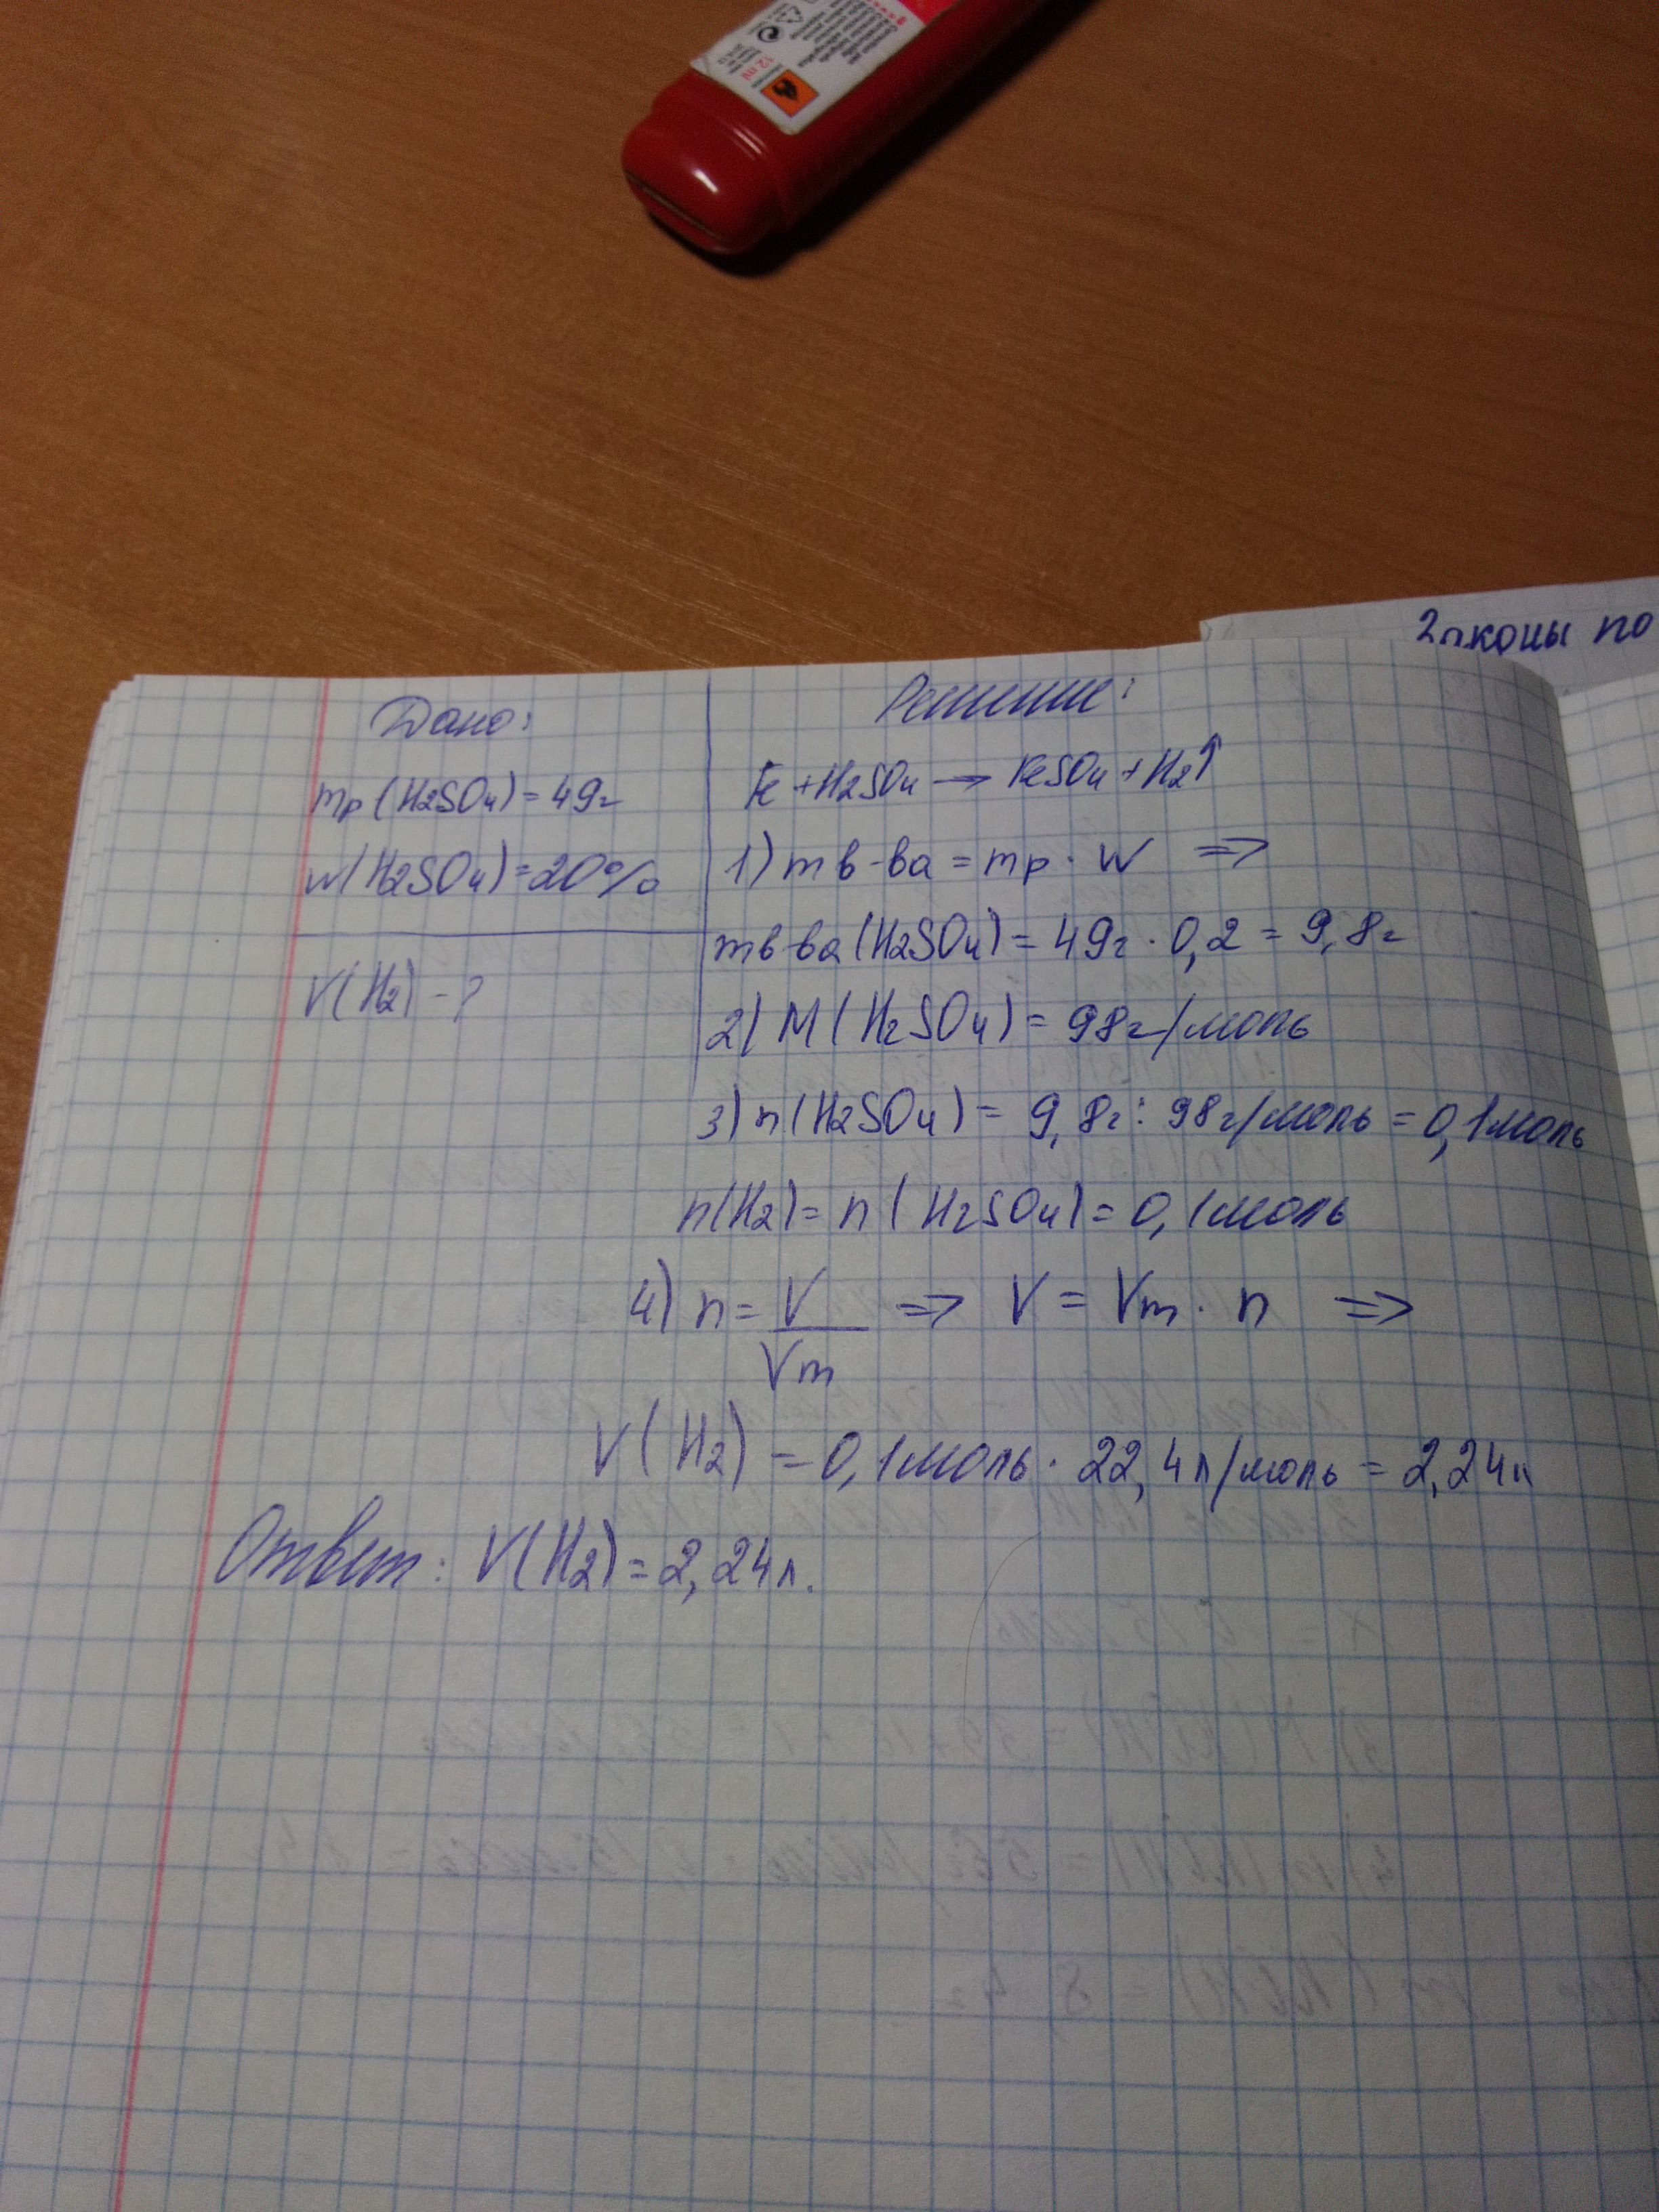 12 ml
Законы по
Дано:
mр (H2SO4) = 49г
w(H2SO4) = 20%
V(H2) - ?
Решение:
Fe + H2SO4 → FeSO4 + H2↑
1) m в-ва = mр · w ⇒
m в-ва (H2SO4) = 49г · 0,2 = 9,8г
2) M (H2SO4) = 98г/моль
3) n (H2SO4) = 9,8г : 98г/моль = 0,1моль
n(H2) = n (H2SO4) = 0,1моль
4) n = V/Vm ⇒ V = Vm · n ⇒
V (H2) = 0,1моль · 22,4л/моль = 2,24л
Ответ: V(H2) = 2,24л.